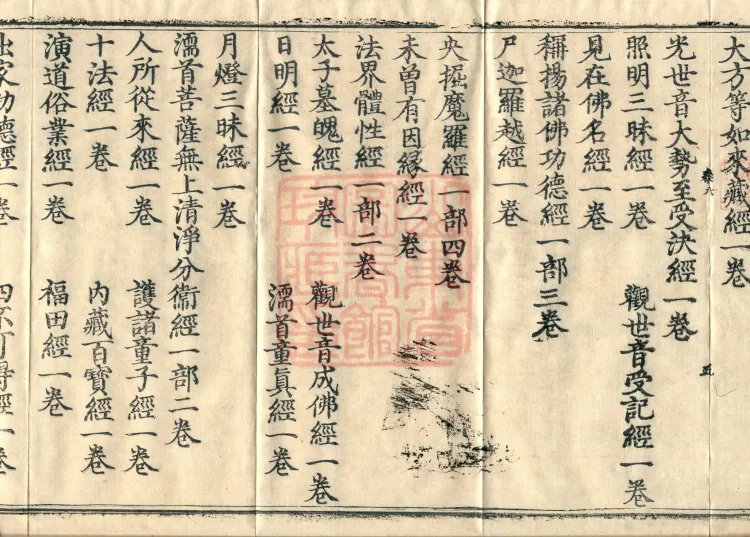 大方等如來藏經一卷
卷六
五
光世音大勢至受決經一卷
照明三昧經一卷 觀世音受記經一卷
見在佛名經一卷
稱揚諸佛功德經一部三卷
尸迦羅越經一卷
央掘魔羅經一部四卷
未曾有因緣經一卷
法界體性經一部二卷
太子墓魄經一卷 觀世音成佛經一卷
日明經一卷 濡首童眞經一卷
月燈三昧經一卷
濡首菩薩無上清淨分衞經一部二卷
人所從來經一卷 護諸童子經一卷
十法經一卷 內藏百寶經一卷
演道俗業經一卷 福田經一卷
出家功德經一卷 四不可得經一卷